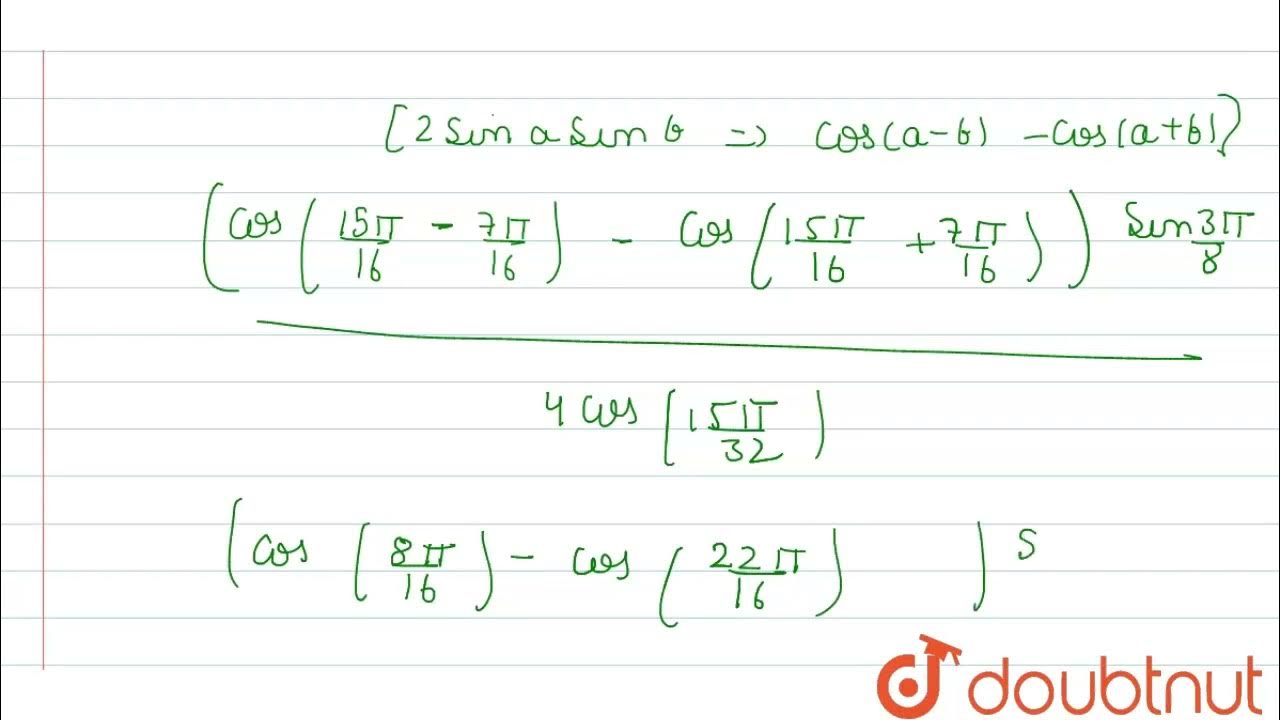 [2 Sin a Sin b => Cos(a-b) - Cos(a+b)]
(Cos(15π/16 - 7π/16) - Cos(15π/16 + 7π/16)) Sin 3π/8
4 Cos(15π/32)
(Cos(8π/16) - Cos(22π/16) ) S
doubtnut